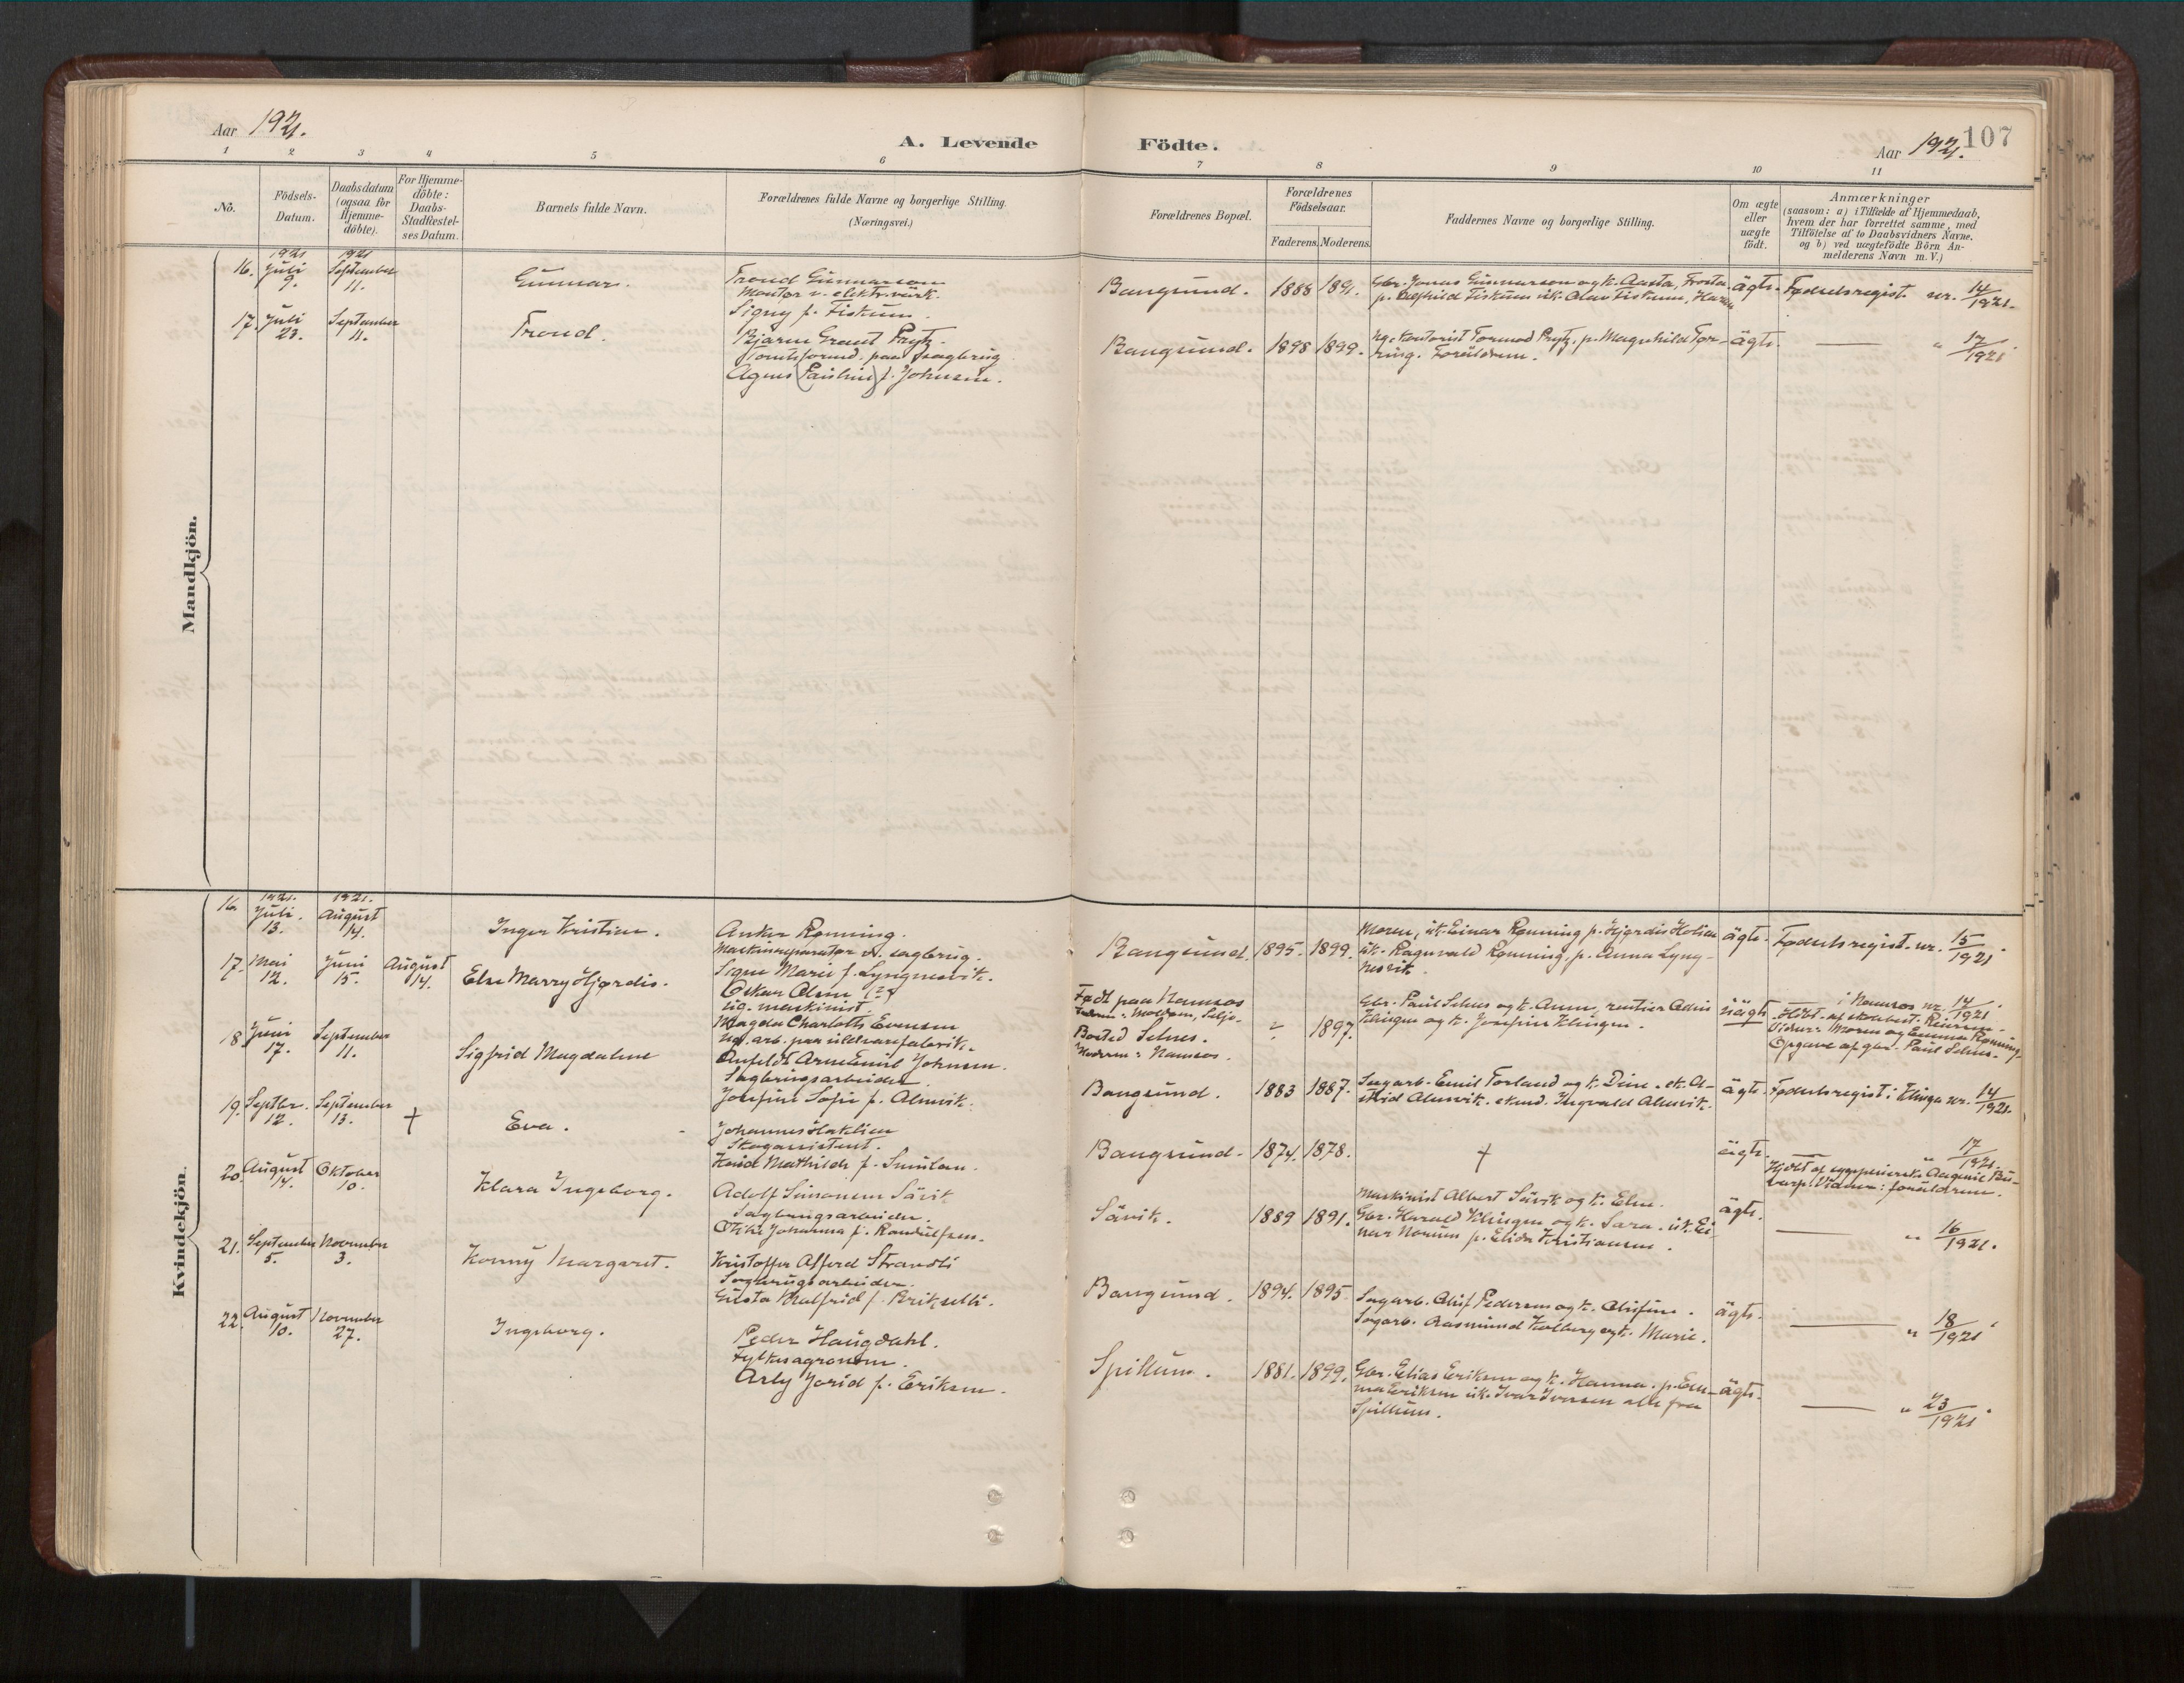 Aar 1921.
A. Levende Födte.
Aar 1921.
107
1 2 3 4 5 6 7 8 9 10 11
No.
Födsels-
Datum.
Daabsdatum
(ogsaa for
Hjemme-
döbte).
For Hjemme-
döbte:
Daabs-
Stadfæstel-
ses Datum.
Barnets fulde Navn.
Forældrenes fulde Navne og borgerlige Stilling.
(Næringsvei.)
Forældrenes Bopæl.
Forældrenes
Födselsaar.
Faderens. Moderens.
Faddernes Navne og borgerlige Stilling.
Om ægte
eller
uægte
födt.
Anmærkninger
(saasom: a) i Tilfælde af Hjemmedaab,
hvem der har forrettet samme, med
Tilföielse af to Daabsvidners Navne.
og b) ved uægtefödte Börn An-
melderens Navn m. V.)
Mandkjön.
1921 1921
16. Juli 9. September 11.
Gunnar.
Trond Gunnarson
Montør v. elektrværk.
Signy f. Fiskum.
Bangsund. 1888 1891.
Gbr. Jonas Gunnarson og k. Aasta, Frosta
p. Alfhild Fiskum uk. Olav Fiskum,
ägte. Fødselsregist. nr. 14/1921.
17. Juli 23. September 11.
Trond.
Bjarne Grændt Prytz.
Tomteformd. paa sagbrug
Agnes (Pauline) f. Johnsen.
Bangsund. 1898 1899.
Ug. Kontorist Tormod Prytz. p. Magnhild Tør-
ring. Forældrene.
ägte. — " 17/1921.
Kvindekjön.
1921. 1921.
16. Juli. 13. August 14.
Inger Kristine.
Anker Rønning.
Maskinreparatør v. sagbrug.
Signe Marie f. Lyngnesvik.
Bangsund. 1895. 1899.
Moren, uk. Einar Rønning p. Hjørdis Holien
uk. Ragnvald Rønning, p. Anna Lyng-
nesvik.
ägte. Fødselsregist. nr. 15/1921.
17. Mai 12. Juni 15. August 14.
Else Marry Hjørdis.
Oskar Olsen (?)
ug. maskinist.
Magda Charlotte Evensen
ug. arb. paa uldvarefabrik.
Født paa Namsos
Bosted Selnes.
Moderen: Namsos.
" 1897.
Gbr. Paul Selnes og k. Anne, rentier Odin
Klingen og k. Josefine Klingen.
uägte
— i Namsos nr. 14/1921.
Vidner: Moren og Emma Rønning.
Opgave af gbr. Paul Selnes.
18. Juni 17. September 11.
Sigfrid Magdalene
Anfeldt Arne Emil Johnsen.
Sagbrugsarbeider.
Josefine Sofie f. Almvik.
Bangsund. 1883 1887.
Sagarb. Emil Torland og k. Dine. ek. A-
strid Almvik. ekmd. Ingvald Almvik.
ägte. Fødselsregist: Klinga nr. 14/1921.
19. Septbr. 12. September 13. †
Eva.
Johannes Haklien
Skogassistent.
Kaia Mathilde f. Smislan.
Bangsund. 1874. 1878.
†
ägte. — " 17/1921.
Vidner: forældrene.
20. August 14. Oktober 10.
Klara Ingeborg.
Adolf Simonsen Sävik
Sagbrugsarbeider.
Otike Johanna f. Randulfsen.
Sävik. 1889 1891.
Maskinist Albert Sävik og k. Elen.
Gbr. Harald Klingen og k. Sara. uk. Ei-
nar Nonum p. Elida Kristiansen.
ägte. — " 16/1921.
21. September 5. November 3.
Konny Margaret.
Kristoffer Alfred Strandli
Sagbrugsarbeider.
Gusta Walfrid f. Brikselli.
Bangsund. 1894. 1895.
Sagarb. Oluf Pedersen og k. Olufine.
Sagarb. Aasmund Kolberg og k. Marie.
ägte. — " 18/1921
22. August 10. November 27.
Ingeborg.
Peder Haugdahl.
Fylkesagronom.
Asly Jorid f. Eriksen.
Spillum. 1881. 1899.
Gbr. Elias Eriksen og k. Hanna. p. Em-
ma Eriksen uk. Ivar Iversen alle fra
Spillum.
ägte. — " 23/1921.